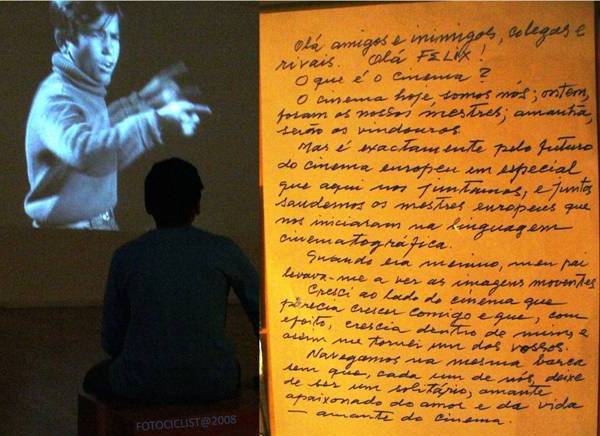 Olá amigos e inimigos, colegas e
rivais. Olá FELIX!
O que é o cinema?
O cinema hoje, somos nós; ontem,
foram os nossos mestres; amanhã,
serão os vindouros
Mas é exactamente pelo futuro
do cinema europeu em especial
que aqui nos juntamos, e juntos
saudemos os mestres europeus que
nos iniciaram na linguagem
cinematográfica.
Quando era menino, meu pai
levava-me a ver as imagens moventes
Cresci ao lado do cinema que
parecia crescer comigo e que, com
efeito, crescia dentro de mim, e
assim me tornei um dos vossos.
Navegamos na mesma barca
sem que, cada um de nós, deixe
de ser um solitário, amante
apaixonado do amor e da vida
— amante do cinema.
FOTOCICLIST@2008